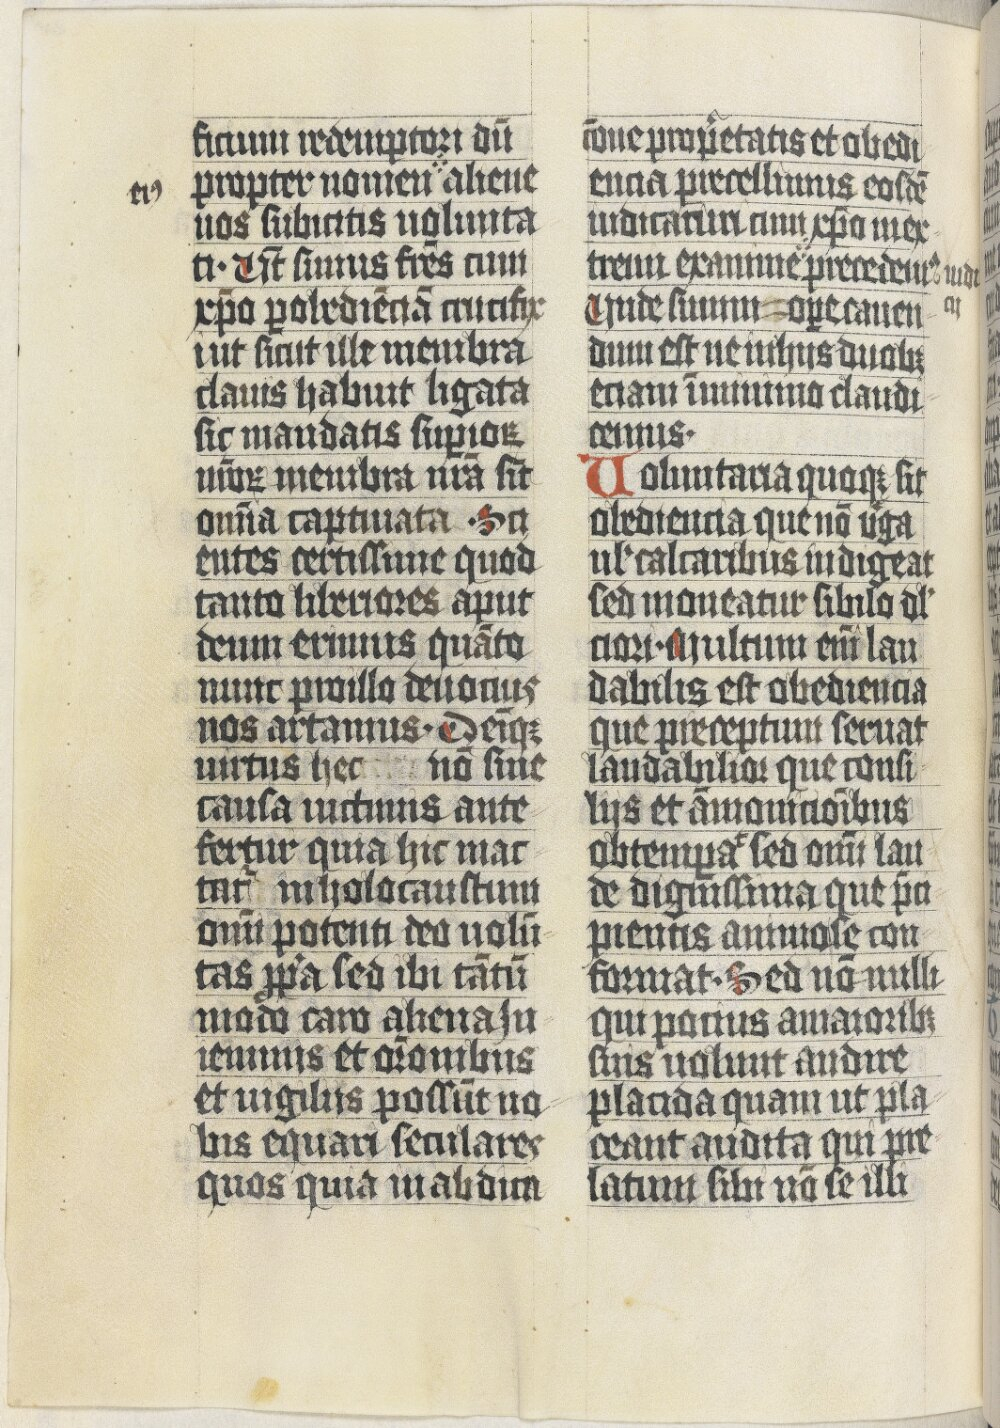 ficium redemptori dū
eiꝰ
propter nomen aliene
uos subicitis uolunta
ti· Ut̄ simus fr̄es cum
xp̄o ꝑ obediēciā crucifix
i ut sicut ille membra
clauis habuit ligata
sic mandatis supioꝝ
nr̄oꝝ membra nrā sīt
omīa captiuata · Sci
entes certissime quod
tanto liberiores aput
deum erimus quāto
nunc pro illo deuocius
nos artamus· Deniqꝫ
uirtus hec nō sine
causa uictimis ante
fertur quia hic mac
tat̄ in holocaustum
om̄i potenti deo uolū
tas ꝓpͥa sed ibi tātū
modo caro aliena Ju
ieiuniis et or̄onibus
et uigiliis possūt no
bis equari seculares
quos quia in abdica
cōne propͥetatis et obedi
encia precellimus eosdē
iudicaturi cum xp̄o in ex
tremi examine precedem᷒
iudi
cij
Unde summ ope cauen
dum est ne in hiis duobꝫ
eciam ī minimo claudi
cemus·
Uoluntaria quoqꝫ sit
obediencia que nō uͥga
ul' calcaribus indigeat
sed moueatur sibilo dl'
ciori· Multum em̄ lau
dabilis est obediencia
que preceptum seruat
laudabilior que consi
liis et āmonicōibus
obtempaᷓt sed om̄i lau
de dignissima que pͥci
pientis animo se con
format· Sed nō nulli
qui pocius a maioribꝫ
suis uolunt audire
placida quam ut pla
ceant audita qui pre
latum sibi nō se illi